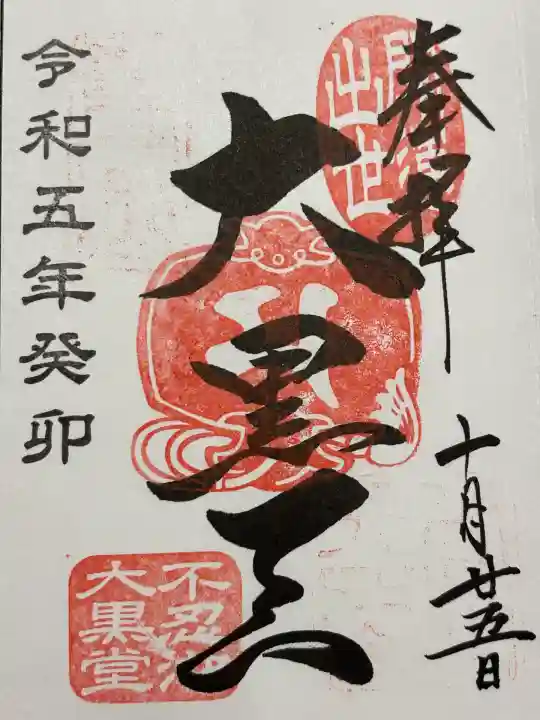 奉拝
十月廿五日
出世
大黒天
令和五年癸卯
不忍池
大黒堂